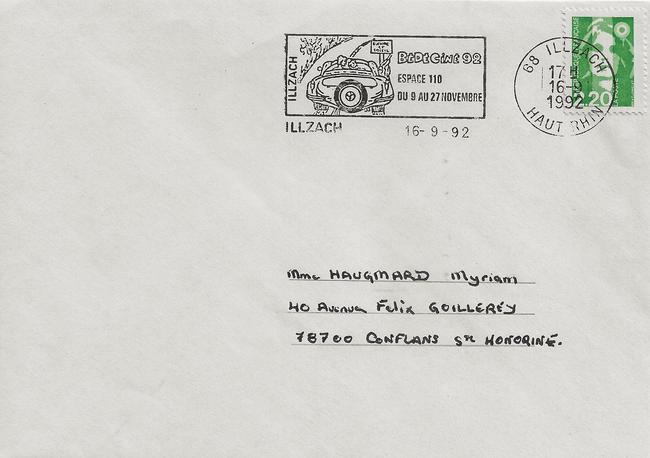 ILLZACH
BEDECINÉ 92
ESPACE 110
DU 9 AU 27 NOVEMBRE
ILLZACH 16-9-92
68 ILLZACH
17H
16-9
1992
HAUT RHIN
2,20
Mme HAUGMARD Myriam
40 Avenue Felix GOILLEREY
78700 CONFLANS Ste HONORINE.